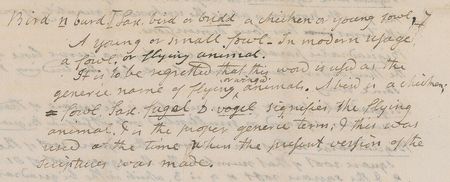 Bird n burd, [Sax. bird or bridd a chicken or young fowl.]
A young or small fowl - In modern usage,
a fowl, or flying animal.
It is to be regretted that this word is used as the
or winged
generic name of flying animals. A bird is a chicken;
fowl, Sax. fugel D vogel signifies the flying
animal, & is the proper generic term; & this was
used at the time when the present version of the
scriptures was made.